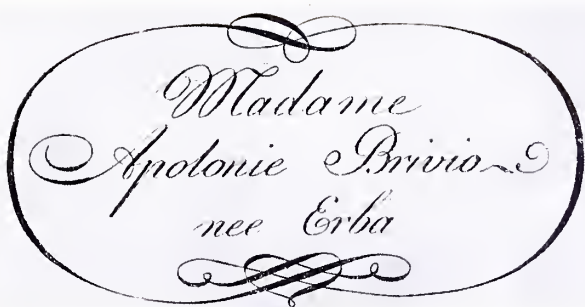 Madame
Apolonie Brivio
nee Erba